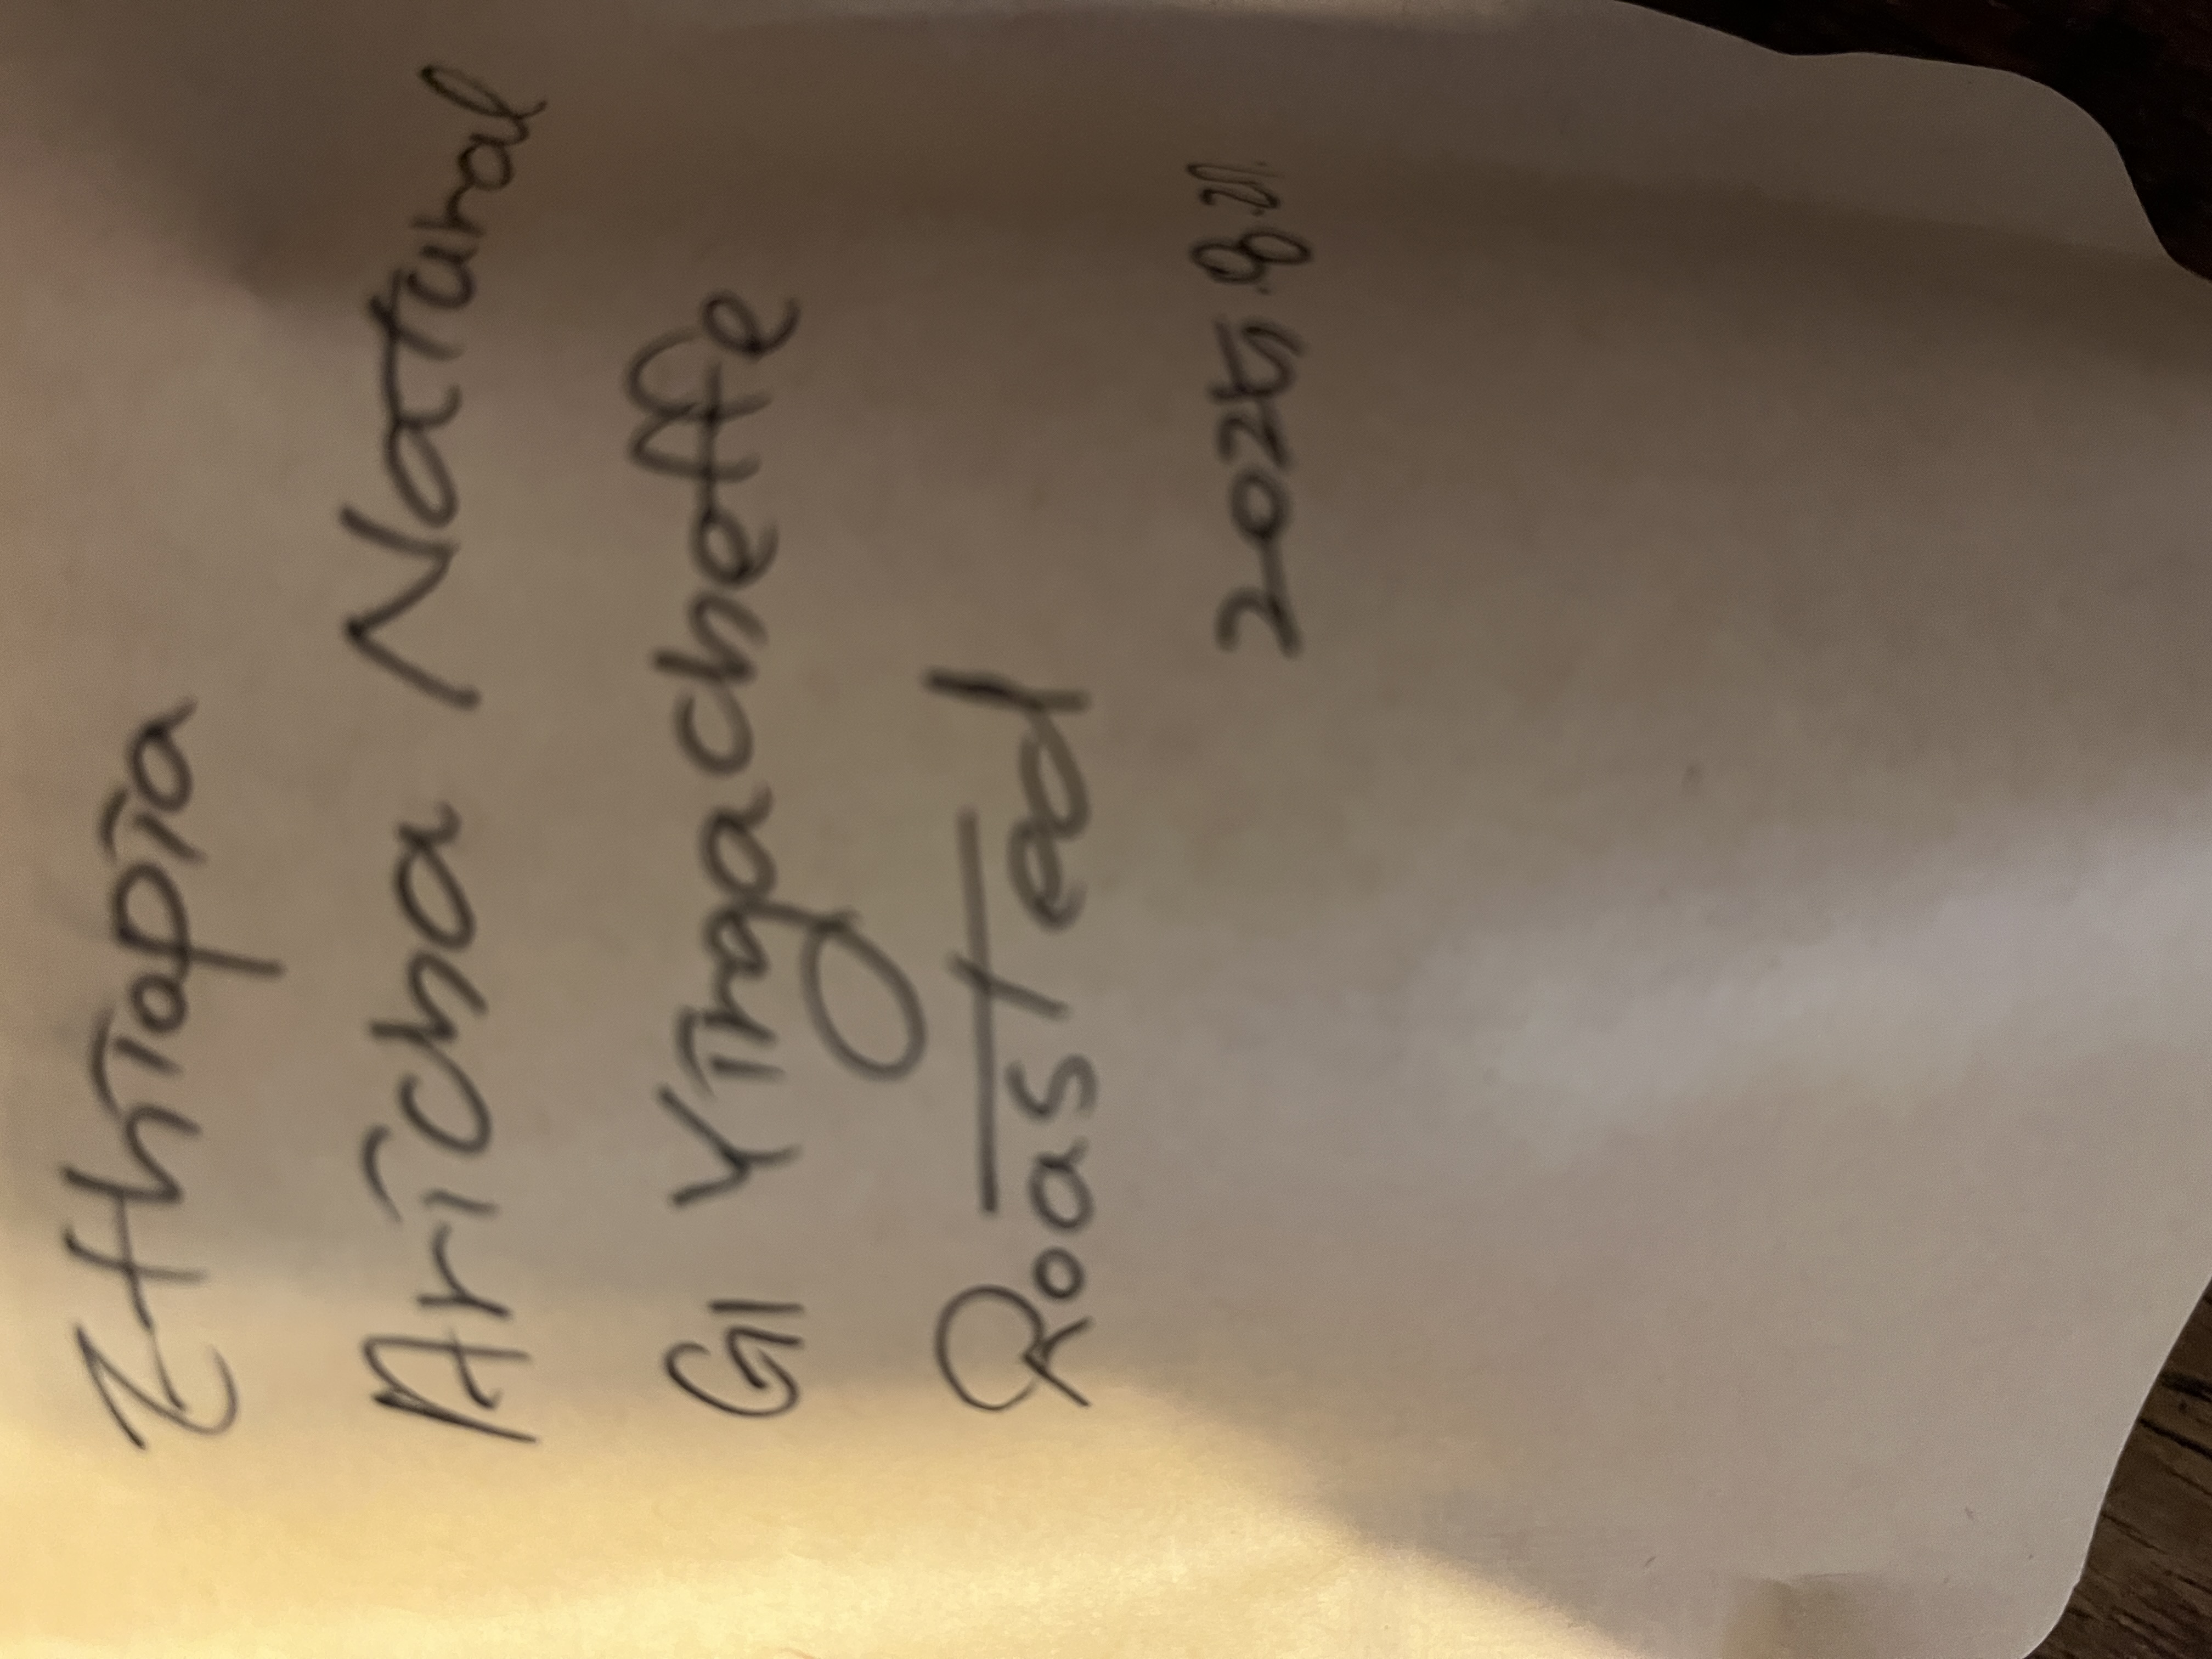 Ethiopia
Aricha Natural
G1 Yirgacheffe
Roasted
2025.8.21.